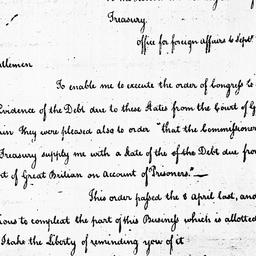 Treasury.
Office for foreign affairs 6 Sept.
tlemen
To enable me to execute the order of Congress to
Evidence of the Debt due to these States from the Court of G
they were pleased also to order "that the Commissioner
Treasury supply me with a State of the of the Debt due from
t of Great Britian on Account of Prisoners."—
This order passed the 8 April last, and
ious to compleat the part of this Business which is allotted
I take the Liberty of reminding you of it